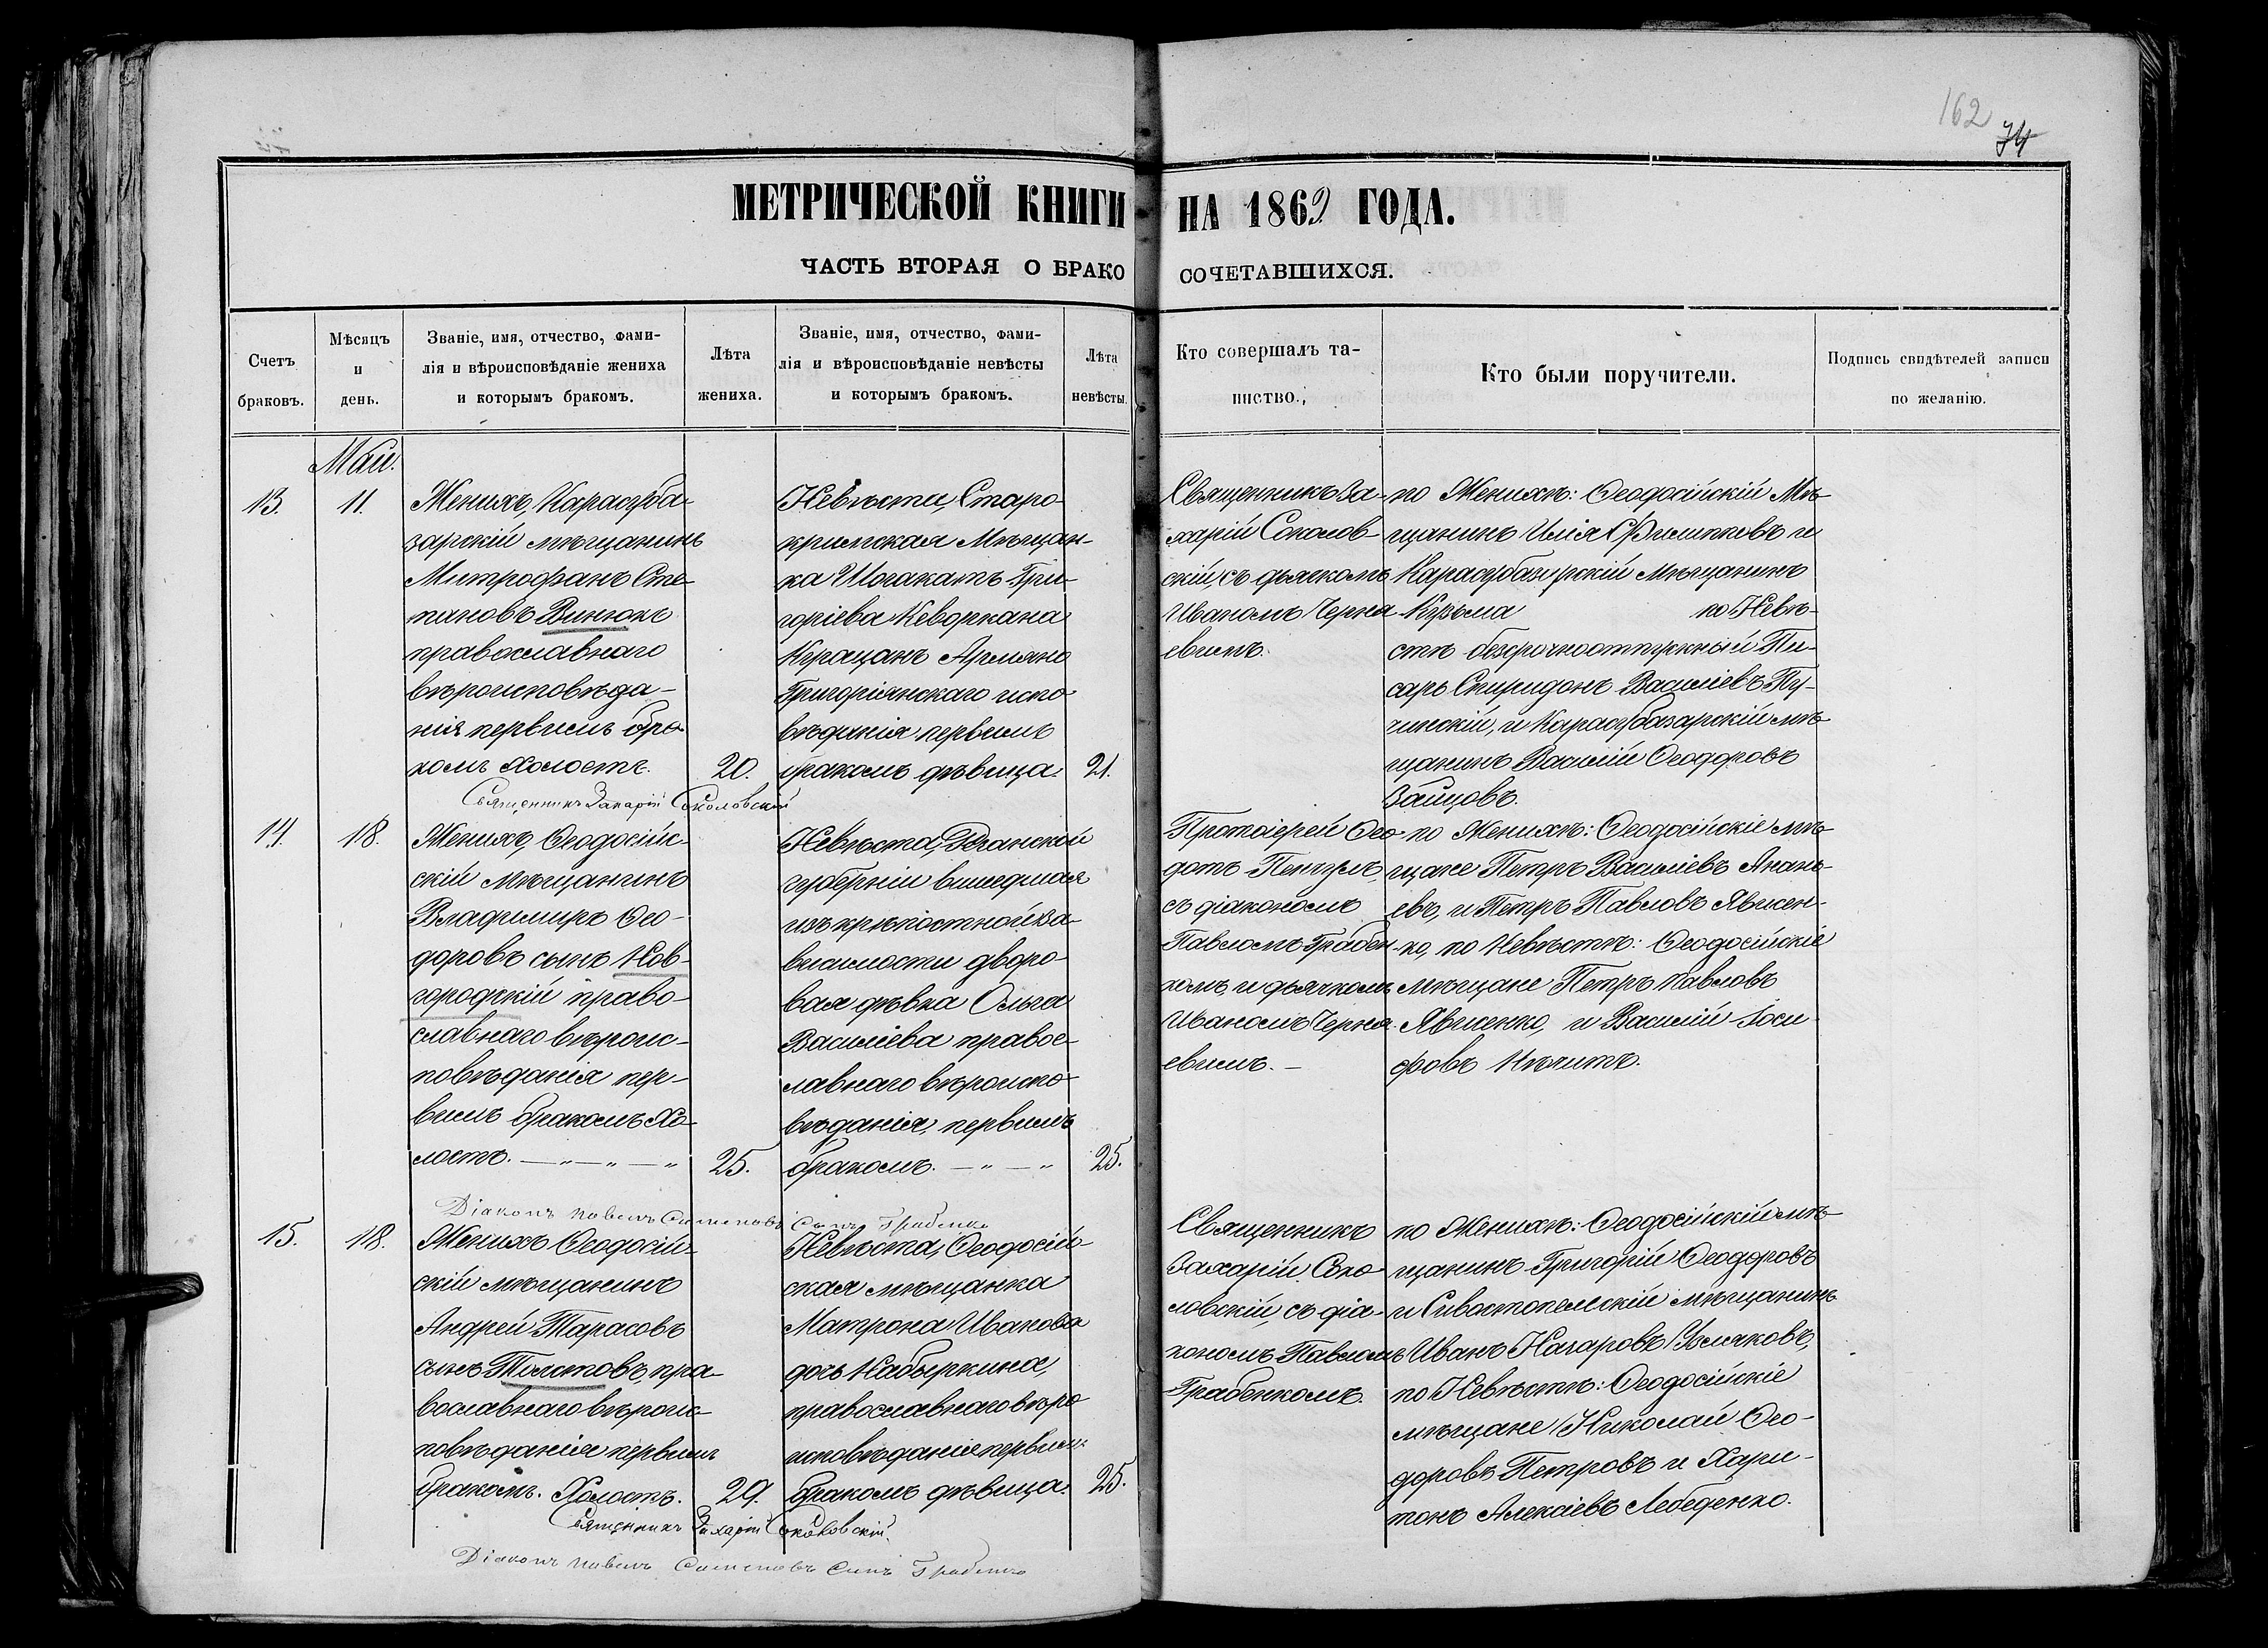 162
74
МЕТРИЧЕСКОЙ КНИГИ НА 1869 ГОДА.
ЧАСТЬ ВТОРАЯ О БРАКО СОЧЕТАВШИХСЯ.
Счетъ
браковъ.
Мѣсяцъ
и
день.
Званіе, имя, отчество, фами-
лія и вѣроисповѣданіе жениха
и которымъ бракомъ.
Лѣта
жениха.
Званіе, имя, отчество, фами-
лія и вѣроисповѣданіе невѣсты
и которымъ бракомъ.
Лѣта
невѣсты.
Кто совершалъ та-
инство.
Кто были поручители.
Подпись свидѣтелей записи
по желанію.
Май.
13.
11.
Женихъ, Карасуба-
зарскій мѣщанинъ
Митрофанъ Сте-
пановъ Винюкъ
православнаго
вѣроисповѣда-
нія первымъ бра-
комъ холостъ.
20.
Невѣста, Старо-
крымская Мѣщан-
ка Шогакатъ Гри-
горіева Кеворкана
Армяно
Григоріянскаго испо-
вѣданія первымъ
бракомъ дѣвица.
21.
Священникъ За-
харій Соколов-
скій, съ дьячкомъ
Иваномъ Черня-
евымъ.
по Женихѣ: Ѳеодосійскій Мѣ-
щанинъ Илія Филипковъ и
Карасубазарскій мѣщанинъ
Кузьма по Невѣ-
стѣ безсрочноотпускный Пи-
сарь Спиридонъ Василіевъ
и Карасубазарскій мѣ-
щанинъ Василій Ѳеодоровъ
Зайцовъ.
Священникъ Захарій Соколовскій
14.
18.
Женихъ, Ѳеодосій-
скій мѣщанинъ
Владимиръ Ѳео-
доровъ сынъ Нов-
городскій право-
славнаго вѣроис-
повѣданія пер-
вымъ бракомъ хо-
лостъ.
25.
Невѣста, Рязанской
губерніи вышедшая
изъ крѣпостной за-
висимости дворо-
вая дѣвка Ольга
Василіева правос-
лавнаго вѣроиспо-
вѣданія, первымъ
бракомъ.
25.
Протоіерей Ѳео-
дотъ
съ діакономъ
Павломъ Грабен-
комъ, и дьячкомъ
Иваномъ Черня-
евымъ.
по Женихѣ: Ѳеодосійскіе мѣ-
щане Петръ Василіевъ Анань-
евъ, и Петръ Павловъ Явисен-
ко, по Невѣстѣ: Ѳеодосійскіе
мѣщане Петръ Павловъ
Явисенко, и Василій Іоси-
фовъ
Діаконъ Павелъ Симеоновъ Сынъ Грабенко
15.
18.
Женихъ Ѳеодосій-
скій мѣщанинъ
Андрей Тарасовъ
сынъ Толстовъ, пра-
вославнаго вѣроис-
повѣданія первымъ
бракомъ. Холостъ.
29.
Невѣста, Ѳеодосій-
ская мѣщанка
Матрона Иванова
дочь Кабыркина,
православнаго вѣро-
исповѣданія первым
бракомъ дѣвица.
25.
Священникъ
Захарій Соко-
ловскій, съ діа-
кономъ Павломъ
Грабенкомъ.
по Женихѣ: Ѳеодосійскій мѣ-
щанинъ Григорій Ѳеодоровъ
и Сивостопольскій мѣщанинъ
Иванъ
по Невѣстѣ: Ѳеодосійскіе
мѣщане Николай Ѳео-
доровъ Петровъ и Хари-
тонъ Алексіевъ Лебеденко.
Священникъ Захарій Соколовскій.
Діаконъ Павелъ Симеоновъ Сынъ Грабенко